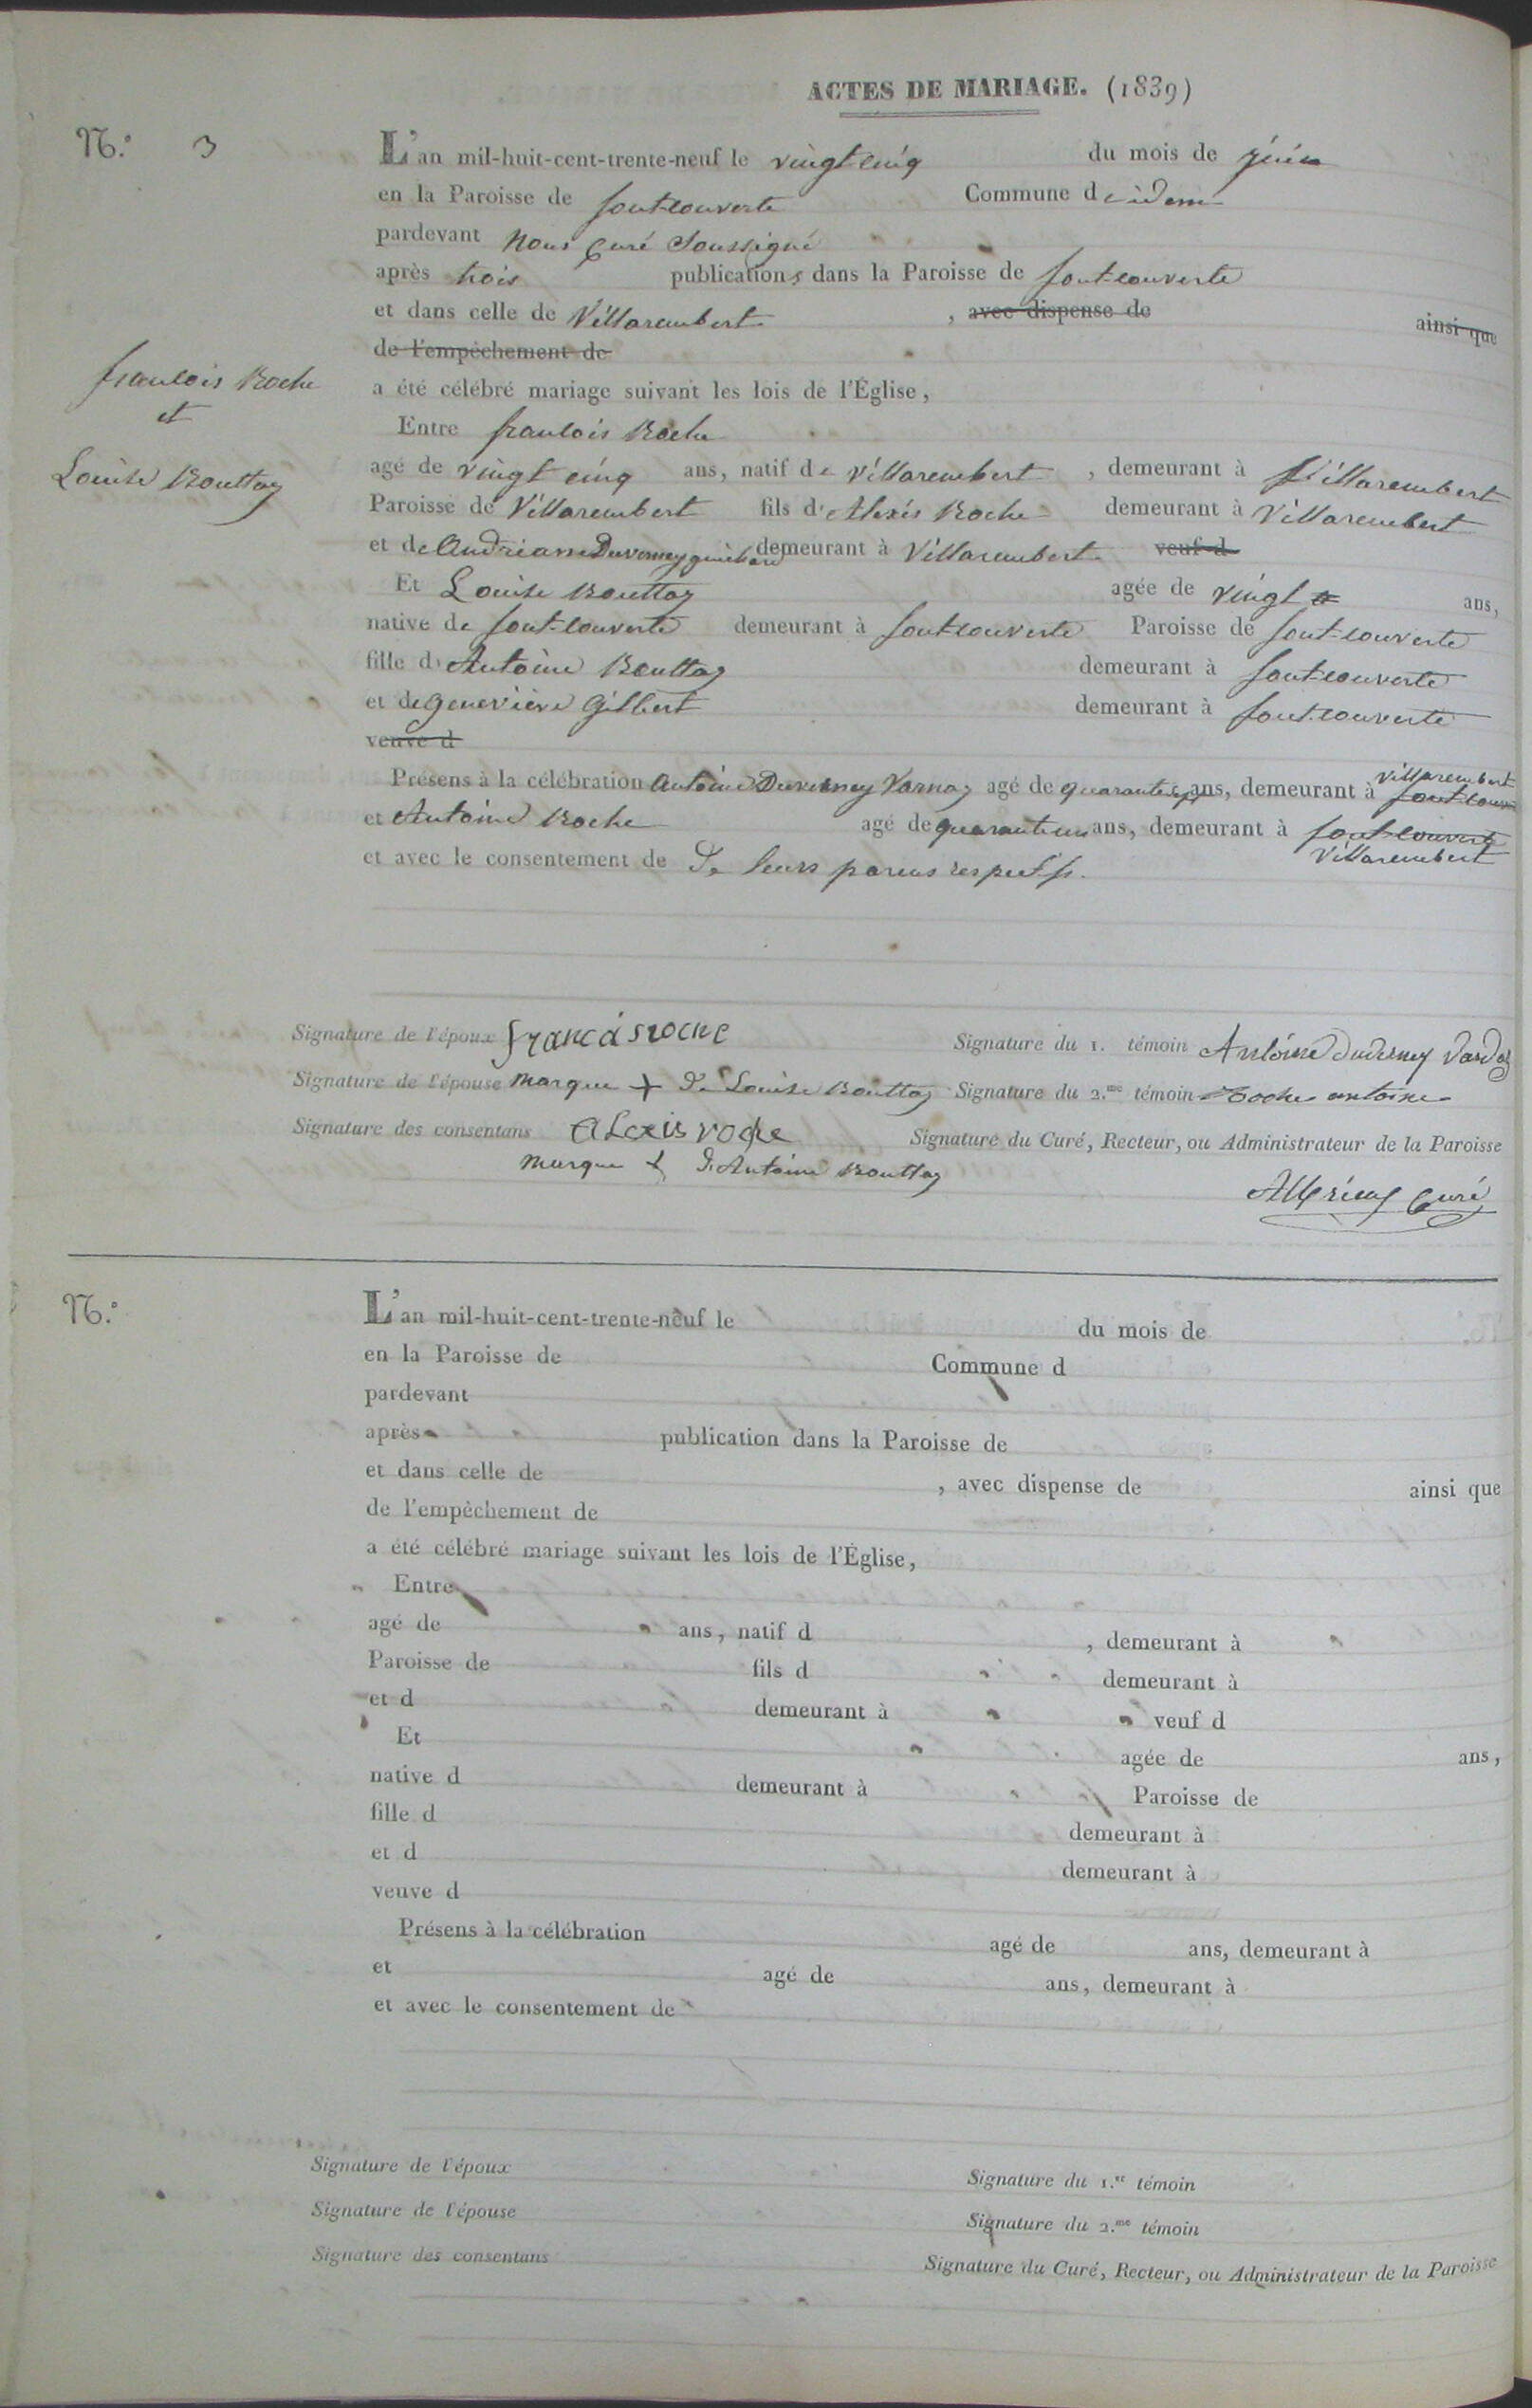 ACTES DE MARIAGE. (1839)
N.o 3
L'an mil-huit-cent-trente-neuf le vingt cinq du mois de juin
en la Paroisse de fontcouverte Commune de idem
pardevant nous curé soussigné
après trois publications dans la Paroisse de fontcouverte
et dans celle de Villarembert , avec dispense de ainsi que
de l'empêchement de
a été célébré mariage suivant les lois de l'Église,
francois Roche
et
Louise Bouttaz
Entre francois Roche
agé de vingt cinq ans, natif de villarembert , demeurant à Villarembert
Paroisse de Villarembert fils d'Alexis Roche demeurant à Villarembert
et de Andrianne Duverney guichard demeurant à Villarembert veuf d
Et Louise Bouttaz agée de vingt ans,
native de fontcouverte demeurant à fontcouverte Paroisse de fontcouverte
fille d'Antoine Bouttaz demeurant à fontcouverte
et de geneviève gilbert demeurant à fontcouverte
veuve d
Présens à la célébration Antoine Duverney Varnaz agé de quarante sept ans, demeurant à fontcouv villarembert
et Antoine Roche agé de quarante un ans, demeurant à fontcouverte villarembert
et avec le consentement de De leurs parens respectifs.
Signature de l'époux francois roche Signature du 1. témoin Antoine duverney
Signature de l'épouse marque + De Louise Bouttaz Signature du 2.me témoin Roche antoine
Signature des consentans alexis roche Signature du Curé, Recteur, ou Administrateur de la Paroisse
marque + D'Antoine Bouttaz
curé
N.o
L'an mil-huit-cent-trente-neuf le du mois de
en la Paroisse de Commune d
pardevant
après publication dans la Paroisse de
et dans celle de , avec dispense de ainsi que
de l'empêchement de
a été célébré mariage suivant les lois de l'Église,
Entre
agé de ans, natif d , demeurant à
Paroisse de fils d demeurant à
et d demeurant à veuf d
Et agée de ans,
native d demeurant à Paroisse de
fille d demeurant à
et d demeurant à
veuve d
Présens à la célébration agé de ans, demeurant à
et agé de ans, demeurant à
et avec le consentement de
Signature de l'époux Signature du 1.er témoin
Signature de l'épouse Signature du 2.me témoin
Signature des consentans Signature du Curé, Recteur, ou Administrateur de la Paroisse